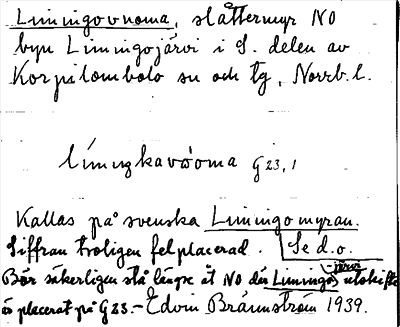 Limingovuoma, slåttermyr NO
byn Limingojärvi i S. delen av
Korpilombolo sn och tg, Norrb. l.
líminzkavåoma G23,1
Kallas på svenska Limingomyran.
Siffran troligen felplacerad. Se d.o.
Bör säkerligen stå längre åt NO där Limingojärvi utskrifts
är placerat på G23. – Edvin Brännström 1939.